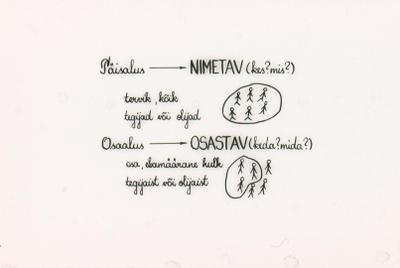 Päisalus → NIMETAV (kes? mis?)
tervik, kõik
tegijad või olijad
Osaalus → OSASTAV (keda? mida?)
osa, ebamäärane hulk
tegijaist või olijaist